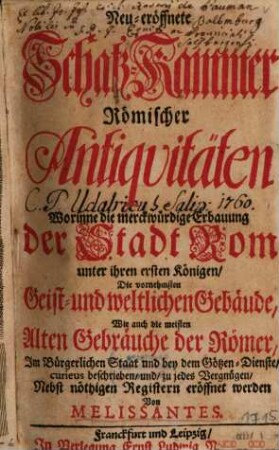 Neu-eröffnete
Schatz-Kammer
Römischer
Antiquitäten
C. P. Udalricus 1760.
Worinne die merckwürdige Erbauung
der Stadt Rom
unter ihren ersten Königen/
Die vornehmsten
Geist- und weltlichen Gebäude,
Wie auch die meisten
Alten Gebräuche der Römer,
Im Bürgerlichen Staat und bey dem Götzen-Dienste/
curieus beschrieben/und/zu jedes Vergnügen/
Nebst nöthigen Registern eröffnet werden
Von
MELISSANTES.
1715
Franckfurt und Leipzig/
In Verlegung Ernst Ludwig